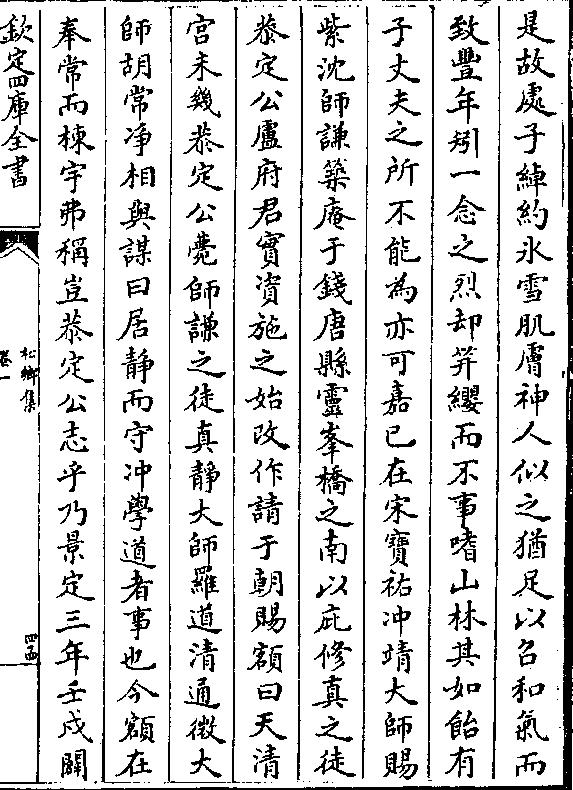 是故處子綽約氷雪肌膚神人似之猶足以召和氣而
致豐年矧一念之烈却笄纓而不事嗜山林其如飴有
子丈夫之所不能為亦可嘉已在宋寶祐冲靖大師賜
紫沈師謙築庵于錢唐縣靈峯橋之南以庇修真之徒
恭定公廬府君實資施之始改作請于朝賜額曰天清
宮未幾恭定公薨師謙之徒真靜大師羅道清通微大
師胡常净相與謀曰居靜而守冲學道者事也今額在
奉常而棟宇弗稱豈恭定公志乎乃景定三年壬戌闢
欽定四庫全書
松鄉集
卷一
四